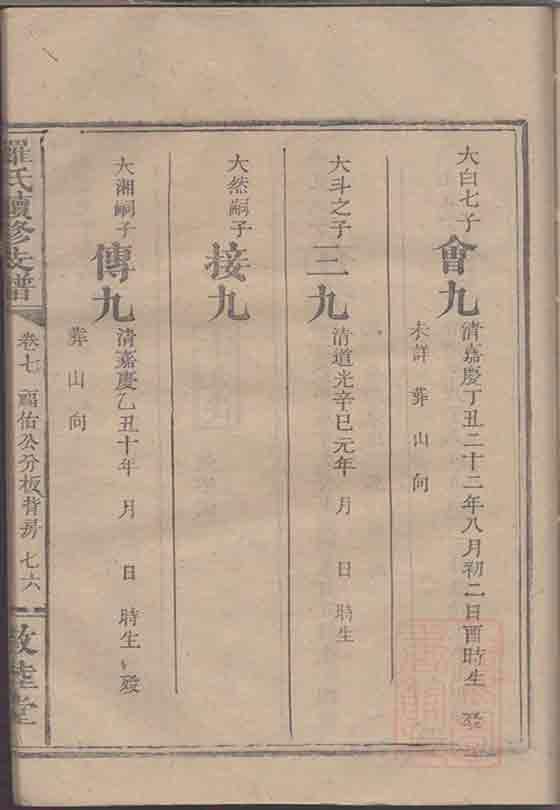 大白七子
會九
清嘉慶丁丑二十二年八月初二日酉時生 歿
未詳 葬 山 向
大斗之子
三九
清道光辛巳元年 月 日 時生
大然嗣子
接九
大湘嗣子
傳九
清嘉慶乙丑十年 月 日 時生 歿
葬 山 向
羅氏續修支譜
卷七 福佑公分板背房 七六
敦睦堂